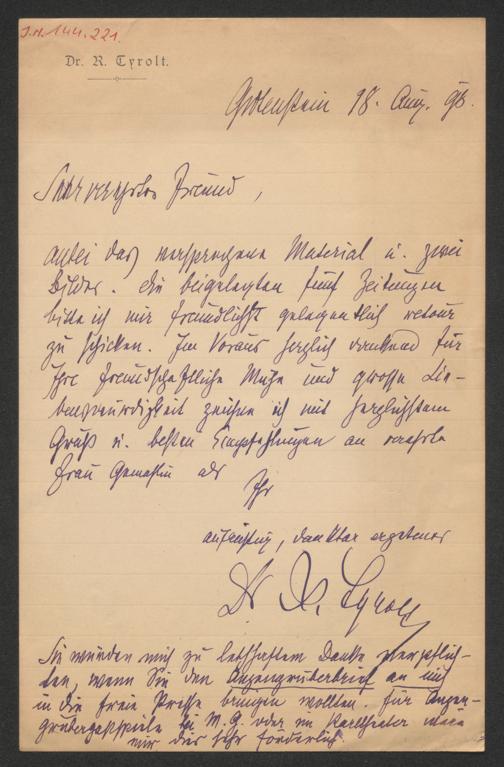 J.N. 144.221.
Dr. R. Tyrolt.
Gutenstein 18. Aug. 98.
Sehr verehrter Freund,
anbei das versprochene Material u. zwei
Bilder. Die beigelegten fünf Zeitungen
bitte ich mir freundlichst gelegentlich retour
zu schicken. Im Voraus herzlich dankend für
Ihre freundschaftliche Mühe und grosse Lie-
benswürdigkeit zeichne ich mit herzlichstem
Gruß u. besten Empfehlungen an verehrte
Frau Gemahlin als
Ihr
aufrichtig, dankbar ergebener
Dr. R. Tyrolt
Sie würden mich zu lebhaftem Danke verpflich-
ten, wenn Sie den Anzengruberbrief an mich
in die freie Presse bringen wollten. Für Anzen-
grubergastspiele in M. G. oder im Karltheater wäre
mir dies sehr förderlich.